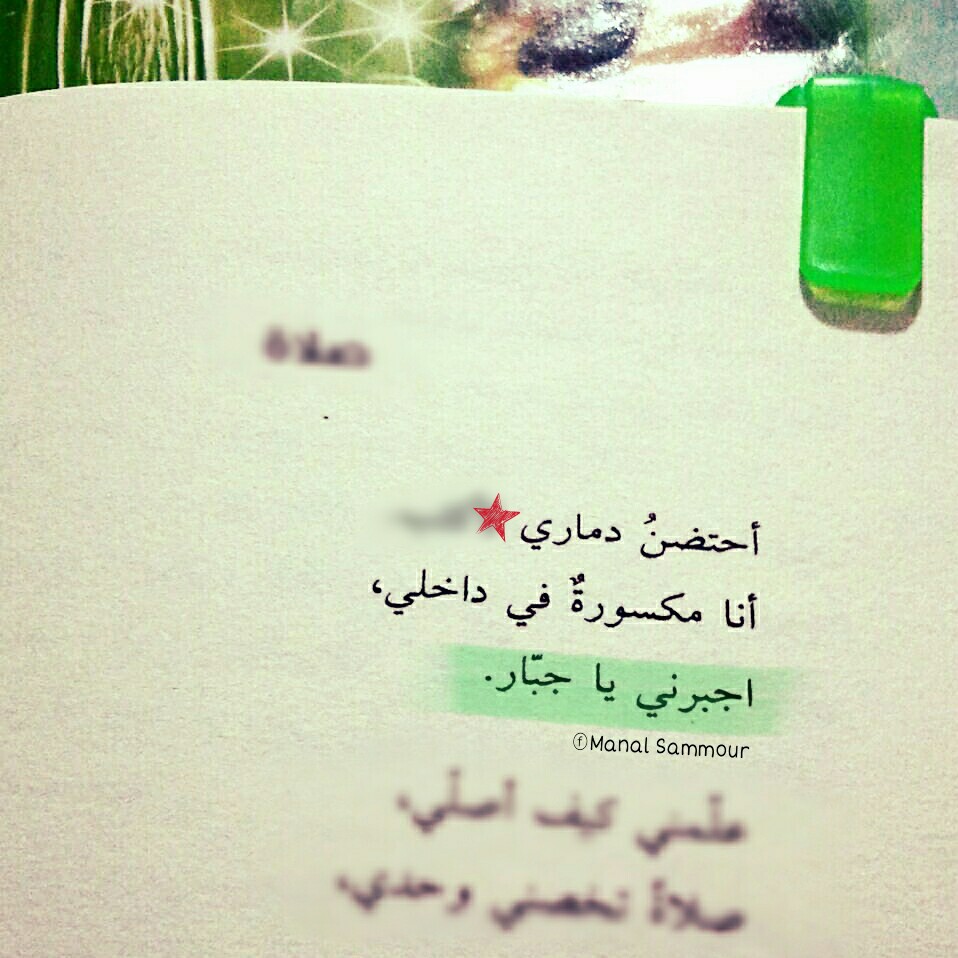 صلاة
أحتضنُ دماري
أنا مكسورةٌ في داخلي،
اجبرني يا جبّار.
ⓕManal Sammour
علّمني كيف أصلّي،
صلاةً تخصني وحدي،